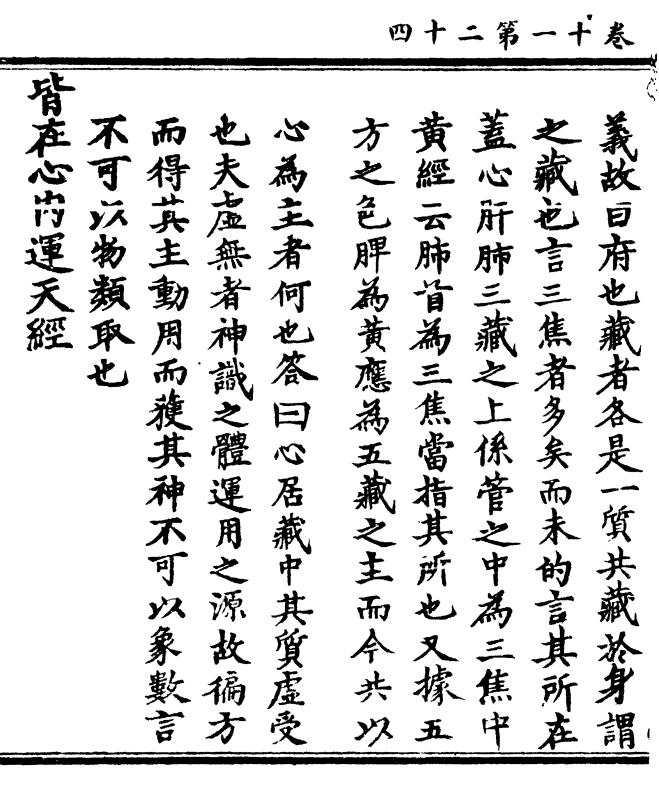 卷十一第二十四
義故曰府也藏者各是一質共藏於身謂
之藏也言三焦者多矣而未的言其所在
蓋心肝肺三藏之上係管之中為三焦中
黃經云肺首為三焦當指其所也又據五
方之色脾為黃應為五藏之主而今共以
心為主者何也答曰心居藏中其質虛受
也夫虛無者神識之體運用之源故徧方
而得其主動用而獲其神不可以象數言
不可以物類取也
皆在心内運天經